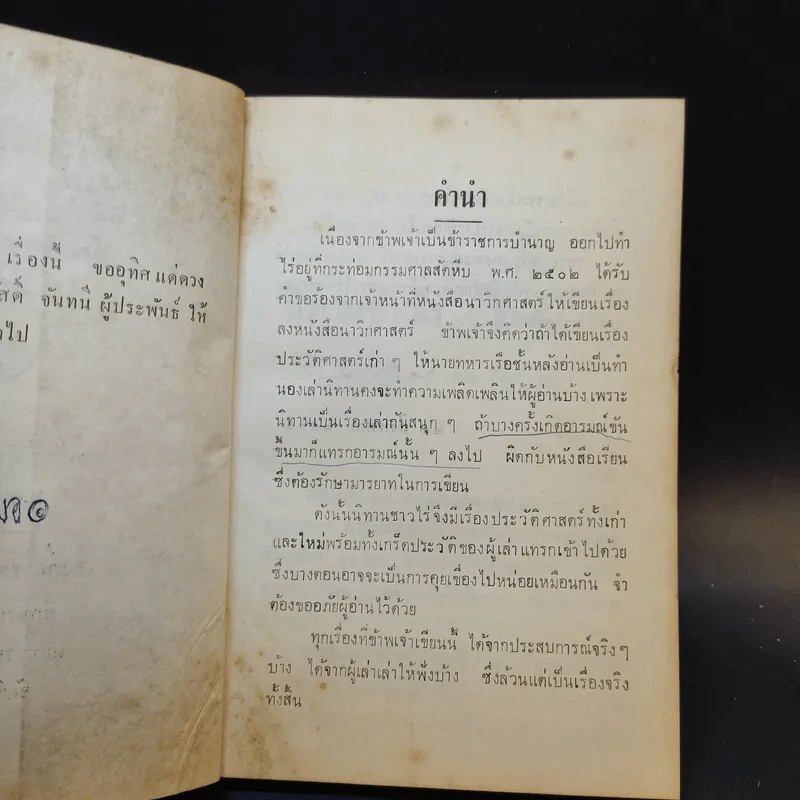 เรื่องนี้ ขออุทิศแด่ดวง
จันทนี ผู้ประพันธ์ ให้
คำนำ
เนื่องจากข้าพเจ้าเป็นข้าราชการบำนาญ ออกไปทำ
ไร่อยู่ที่กระท่อมกรรมศาลสัตหีบ พ.ศ. ๒๕๐๒ ได้รับ
คำขอร้องจากเจ้าหน้าที่หนังสือนาวิกศาสตร์ ให้เขียนเรื่อง
ลงหนังสือนาวิกศาสตร์ ข้าพเจ้าจึงคิดว่าถ้าได้เขียนเรื่อง
ประวัติศาสตร์เก่า ๆ ให้นายทหารเรือชั้นหลังอ่านเป็นทำ
นองเล่านิทานคงจะทำความเพลิดเพลินให้ผู้อ่านบ้าง เพราะ
นิทานเป็นเรื่องเล่ากันสนุก ๆ ถ้าบางครั้งเกิดอารมณ์ขัน
ขึ้นมาก็แทรกอารมณ์นั้น ๆ ลงไป ผิดกับหนังสือเรียน
ซึ่งต้องรักษามารยาทในการเขียน
ดังนั้นนิทานชาวไร่จึงมีเรื่องประวัติศาสตร์ทั้งเก่า
และใหม่พร้อมทั้งเกร็ดประวัติของผู้เล่า แทรกเข้าไปด้วย
ซึ่งบางตอนอาจจะเป็นการคุยเขื่องไปหน่อยเหมือนกัน จำ
ต้องขออภัยผู้อ่านไว้ด้วย
ทุกเรื่องที่ข้าพเจ้าเขียนนี้ ได้จากประสบการณ์จริงๆ
บ้าง ได้จากผู้เล่าเล่าให้ฟังบ้าง ซึ่งล้วนแต่เป็นเรื่องจริง
ทั้งสิ้น